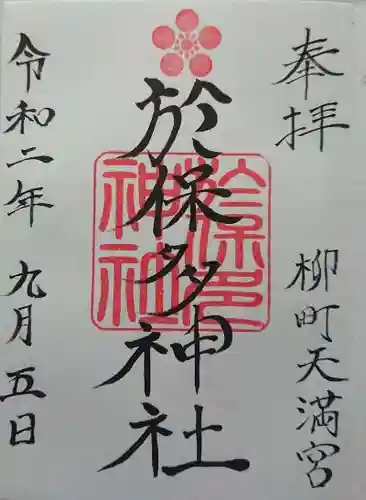 奉拝
柳町天満宮
於保多神社
於保多神社
令和二年九月五日